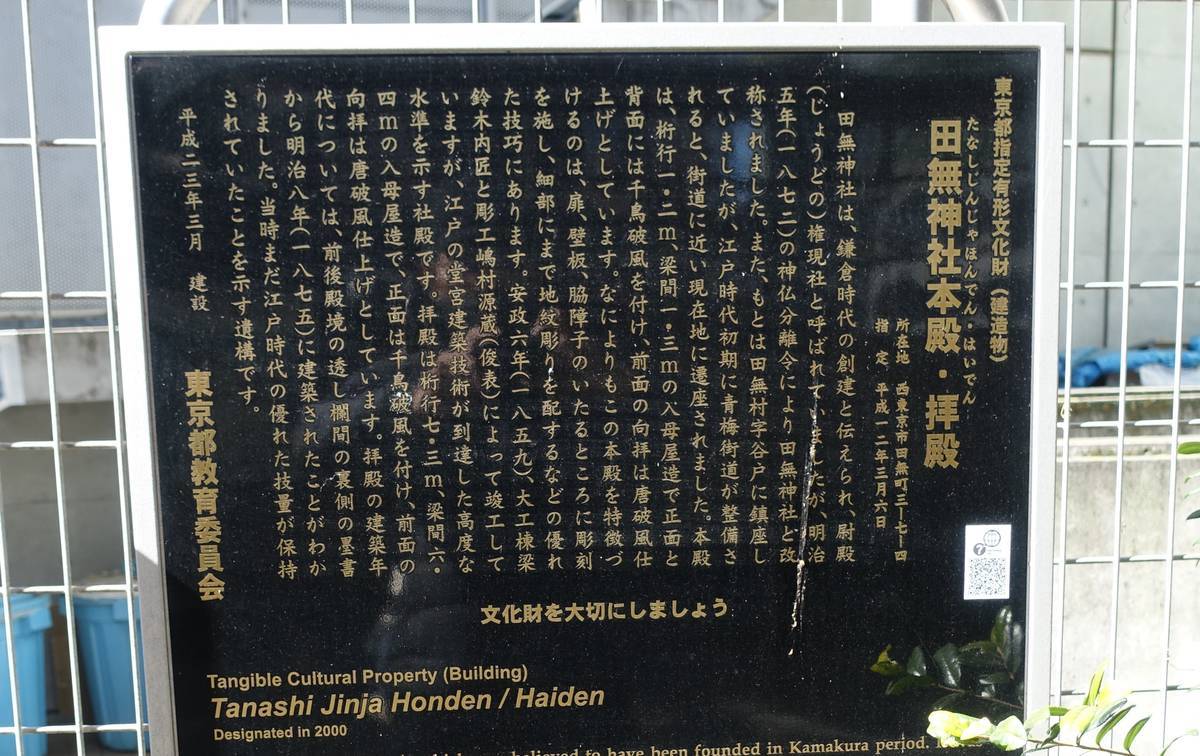 東京都指定有形文化財（建造物）
たなしじんじゃほんでん・はいでん
田無神社本殿・拝殿
所在地　西東京市田無町三ー七ー四
指　定　平成一二年三月六日
田無神社は、鎌倉時代の創建と伝えられ、尉殿
（じょうどの）権現社と呼ばれていましたが、明治
五年（一八七二）の神仏分離令により田無神社と改
称されました。また、もとは田無村字谷戸に鎮座し
ていましたが、江戸時代初期に青梅街道が整備さ
れると、街道に近い現在地に遷座されました。本殿
は、桁行一・二ｍ、梁間一・三ｍの入母屋造で正面と
背面には千鳥破風を付け、前面の向拝は唐破風仕
上げとしています。なによりもこの本殿を特徴づ
けるのは、扉、壁板、脇障子のいたるところに彫刻
を施し、細部にまで地紋彫りを配するなどの優れ
た技巧にあります。安政六年（一八五九）、大工棟梁
鈴木内匠と彫工嶋村源蔵（俊表）によって竣工して
いますが、江戸の堂宮建築技術が到達した高度な
水準を示す社殿です。拝殿は桁行七・三ｍ、梁間六・
四ｍの入母屋造で、正面は千鳥破風を付け、前面の
向拝は唐破風仕上げとしています。拝殿の建築年
代については、前後殿境の透し欄間の裏側の墨書
から明治八年（一八七五）に建築されたことがわか
りました。当時まだ江戸時代の優れた技量が保持
されていたことを示す遺構です。
平成二三年三月　建設
東京都教育委員会
文化財を大切にしましょう
Tangible Cultural Property (Building)
Tanashi Jinja Honden / Haiden
Designated in 2000
believed to have been founded in Kamakura period.